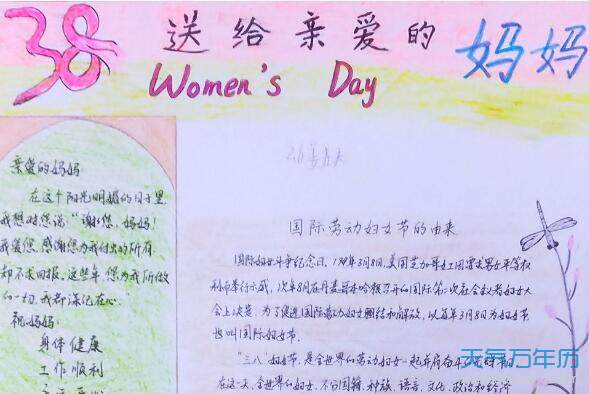 38 送给亲爱的妈妈
Women's Day
亲爱的妈妈:
在这个阳光明媚的日子里,
我想对您说"谢谢您,妈妈!
我爱您,感谢您为我付出的所有
却不求回报。这些年,您为我所做
的一切,我都深记在心。"
祝妈妈:
身体健康
工作顺利
国际劳动妇女节的由来
国际妇女斗争纪念日,
年3月8日,美国芝加哥女工因要求男女平等权
利而举行示威,次年8月在丹麦哥本哈根召开的国际第二次社会主义者妇女大
会上决定,为了促进国际劳动妇女团结和解放,以每年3月8日为妇女节,
也叫国际妇女节。
"三八"妇女节,是全世界的劳动妇女一起
在这一天,全世界妇女,不分国籍、种族、语言、文化、政治和经济
天气万年历